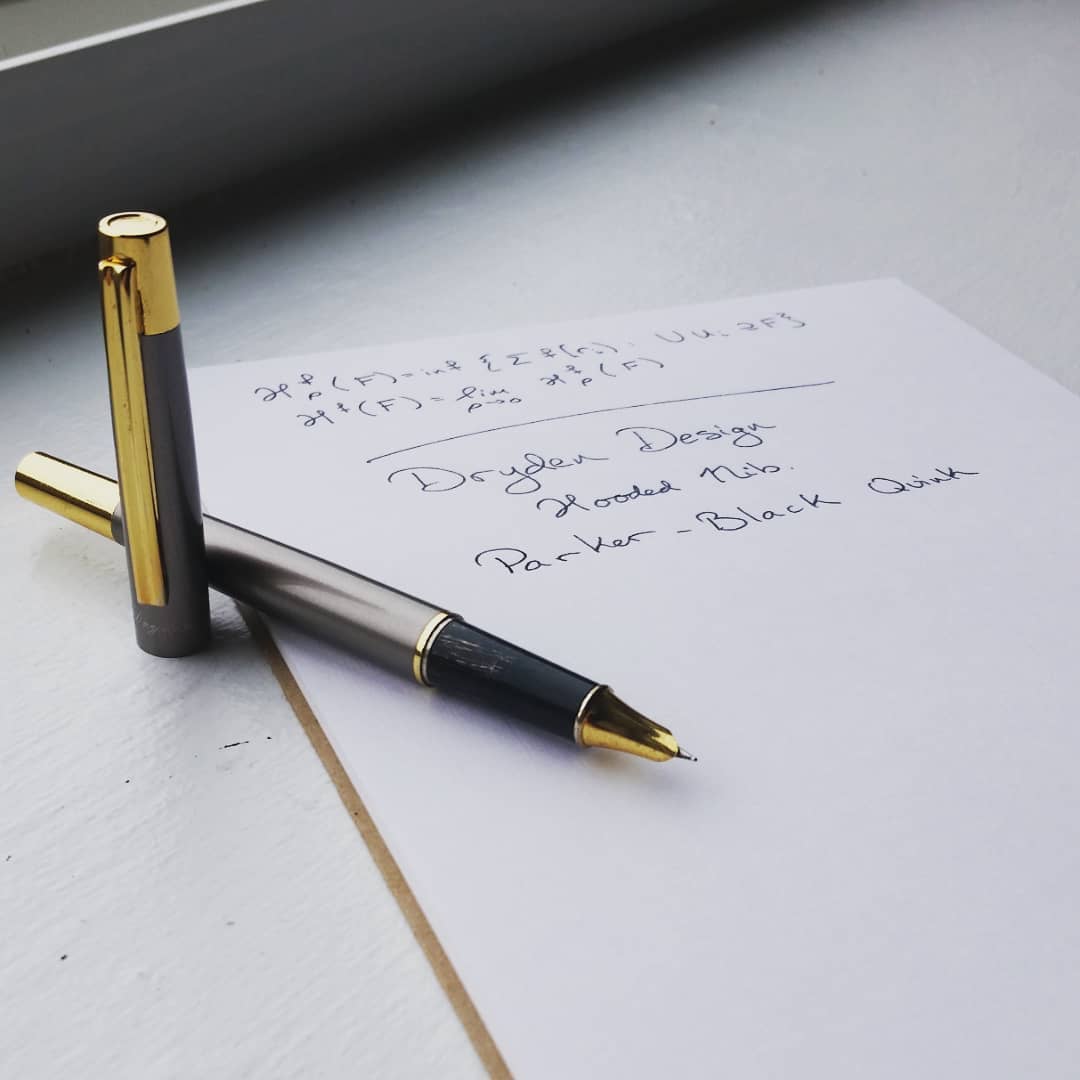 ℋ^f_ρ(F) = inf { Σ f(r_i) : ∪ U_i ⊇ F }
ℋ^f(F) = lim_{ρ→0} ℋ^f_ρ(F)
Dryden Design
Hooded Nib.
Parker - Black Quink